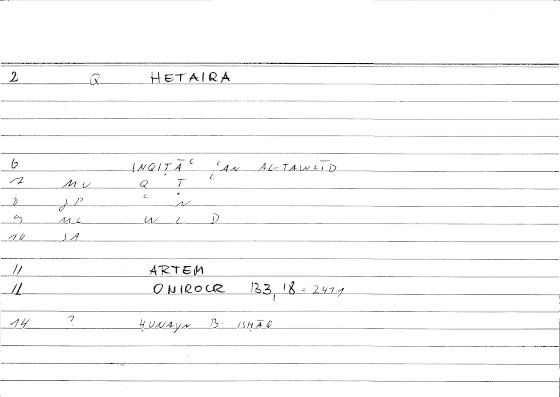 2 Q HETAIRA
6 INQIṬĀʿ ʿAN AL-TAWLĪD
7 MU Q Ṭ ʿ
8 JP ʿ N
9 ML W L D
10 SA
11 ARTEM
12 ONIROCR 133,18 = 2471
14 ? ḤUNAYN B. ISḤĀQ